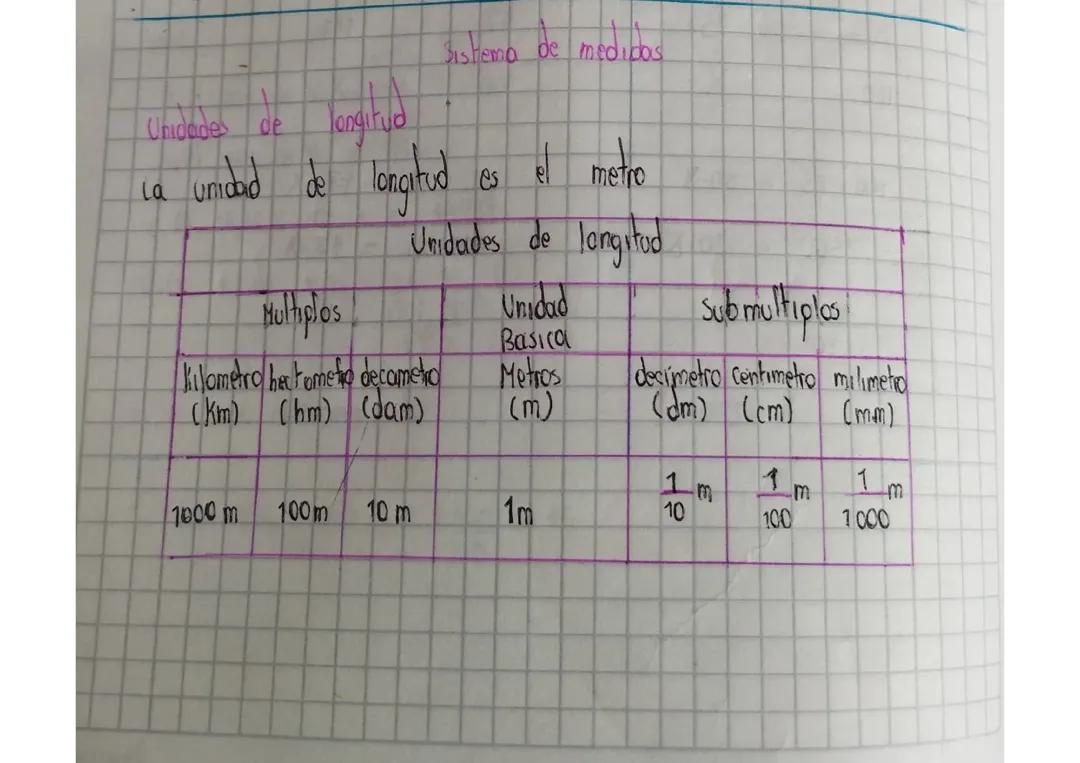 Sistema de medidas
Unidades de longitud
La unidad de longitud es el metro
Unidades de longitud
Multiplos Unidad Basica Submultiplos
Kilometro (Km) hectometro (hm) decametro (dam) Metros (m) decimetro (dm) centimetro (cm) milimetro (mm)
1000 m 100m 10 m 1m 1/10 m 1/100 m 1/1000 m